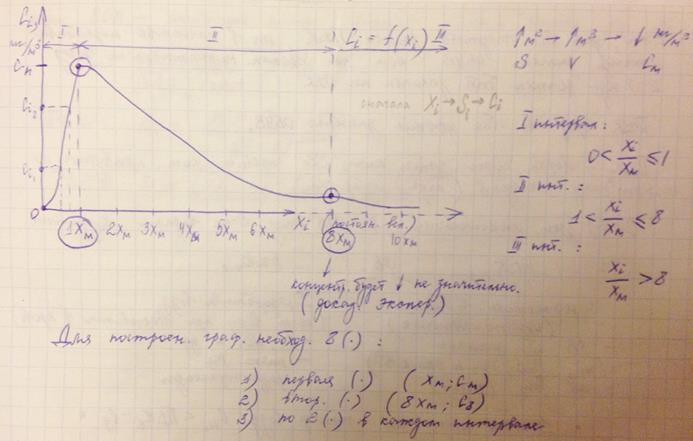 Ci, мг/м³
I II Ci = f(xi) III
Cм
Ci₂
Ci₁
0
1Xм 2Xм 3Xм 4Xм 5Xм 6Xм Xi (постоян. вел.) 8Xм 10Xм
сначала Xi → Si → Ci
↑м² → ↑м³ → ↓ мг/м³
S V Cм
I интервал:
0 < Xi/Xм ≤ 1
II инт.:
1 < Xi/Xм ≤ 8
III инт.:
Xi/Xм > 8
концентр. будет ↓ не значительно.
(доказ. экспер.)
Для построен. граф. необход. 8 (·) :
1) первая (·) (Xм; Cм)
2) втор. (·) (8Xм; C8)
3) по 2 (·) в каждом интервале